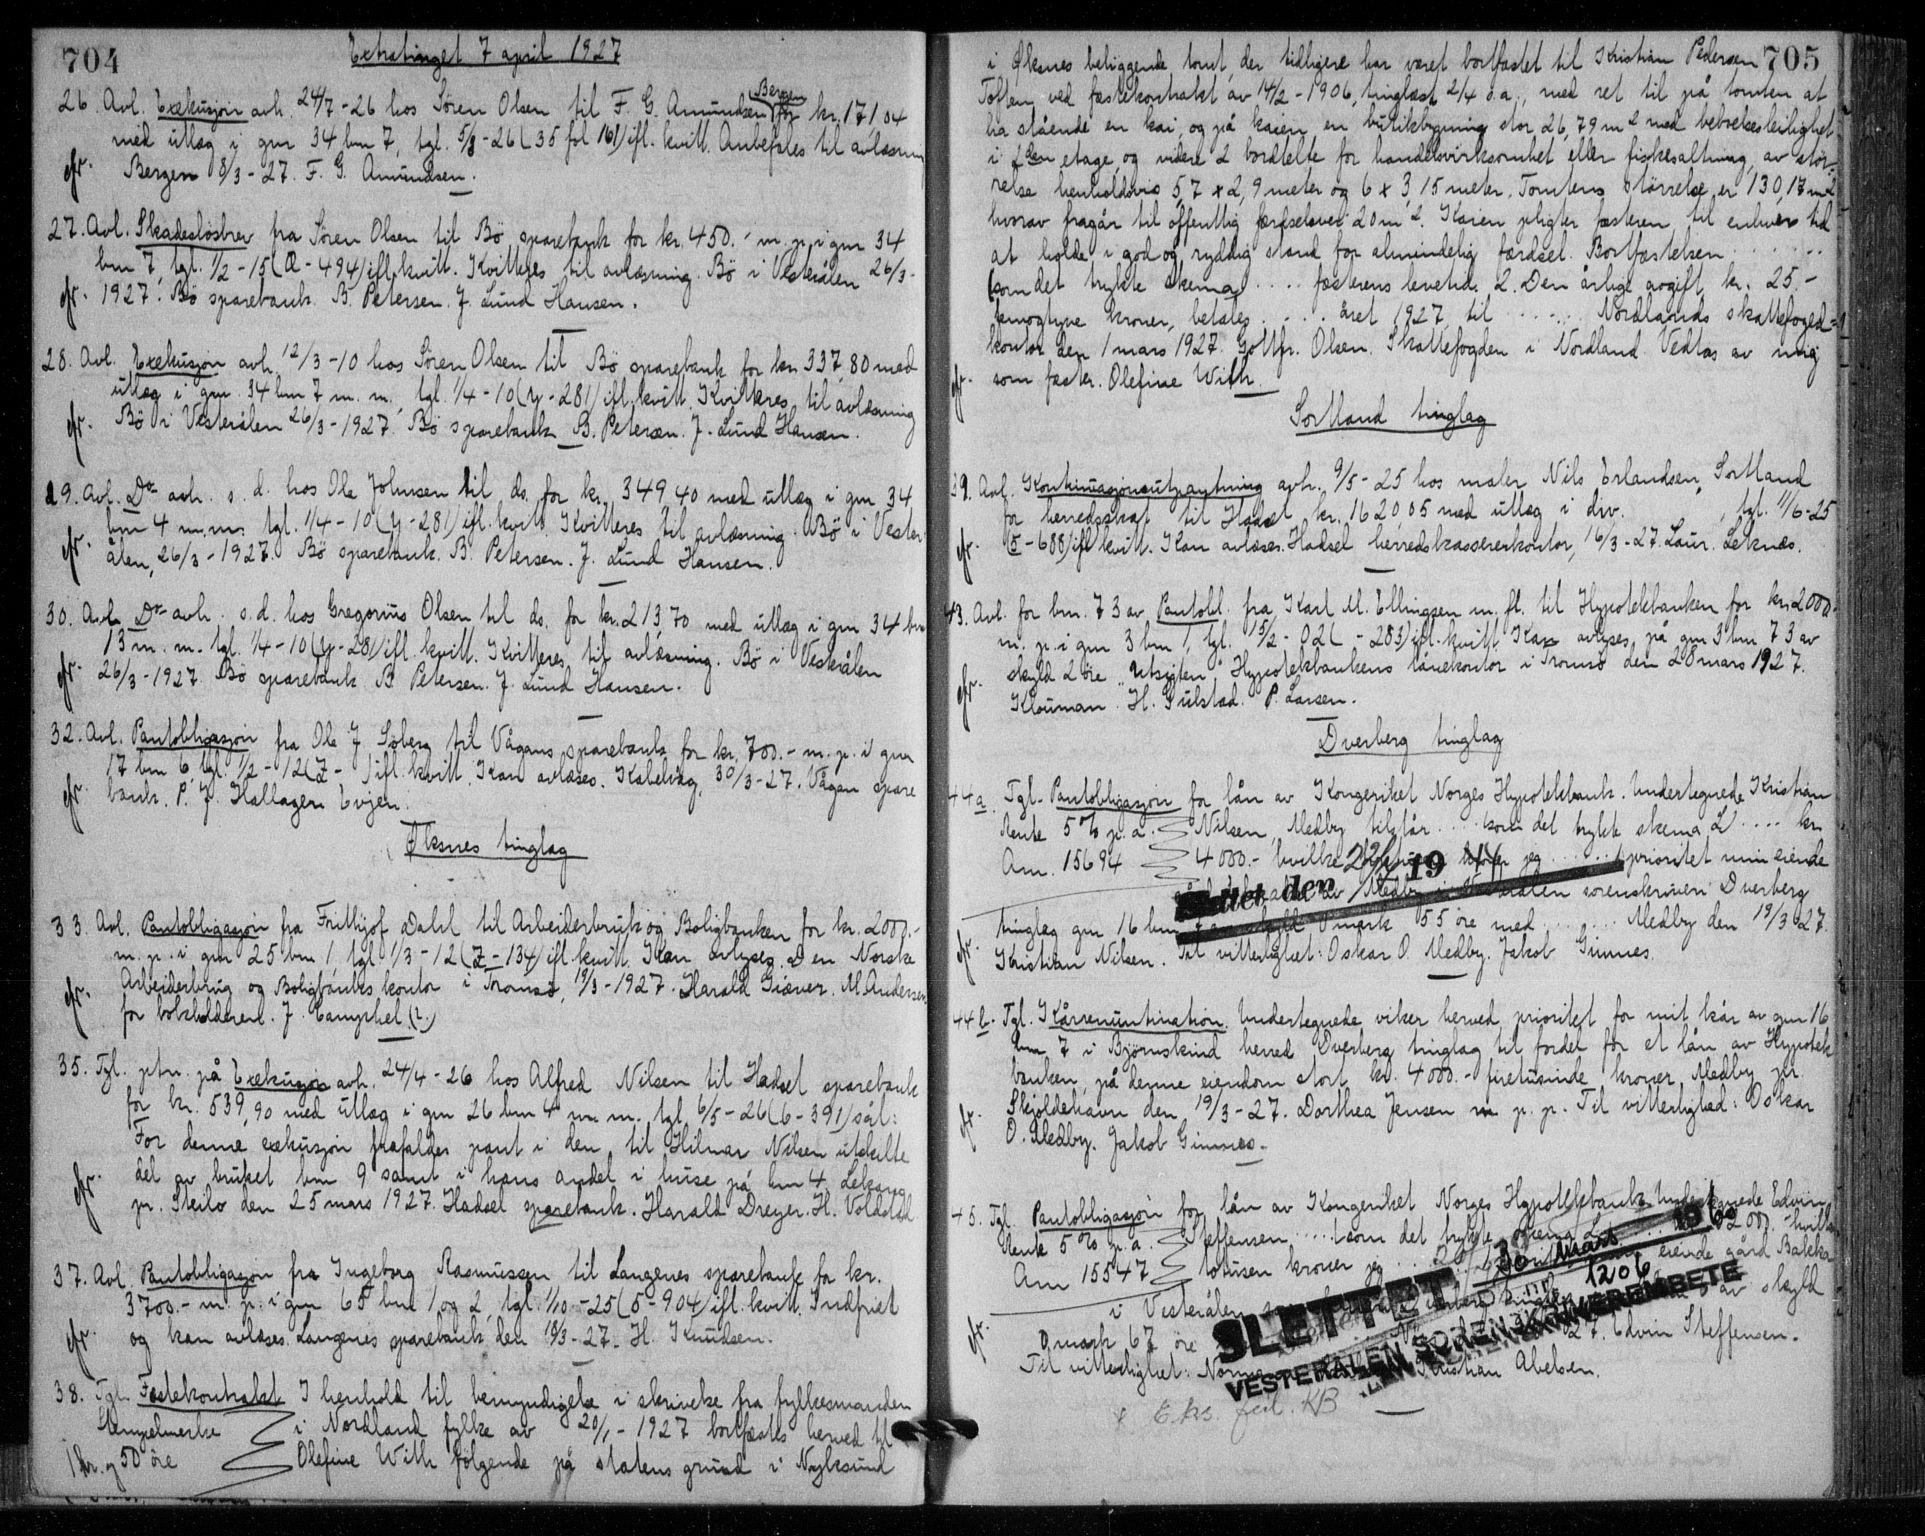 704
Extratinget 7 april 1927
26. Avl. Exekusjon avh. 24/7-26 hos Sören Olsen til F. G. Amundsen Bergen for kr. 171 04
med utlæg i gnr 34 bnr 7, tgl. 5/8-26 (35 fol 161) ifl. kvitt. Anbefales til avlæsning
cfr. Bergen 8/3-27. F. G. Amundsen.
27. Avl. Skadesløsbrev fra Sören Olsen til Bö sparebank for kr. 450.- m. p. i gnr 34
bnr 7, tgl. 1/2-15 (Q-494) ifl. kvitt. Kvitteres til avlæsning. Bö i Vesterålen 26/3-
cfr. 1927. Bö sparebank. B. Petersen. J. Lund Hansen.
28. Avl. Exekusjon avh. 12/3-10 hos Sören Olsen til Bö sparebank for kr 337,80 med
utlæg i gnr. 34 bnr 7 m. m., tgl. 1/4-10 (Y-281) ifl. kvitt. Kvitteres til avlæsning
cfr. Bö i Vesterålen 26/3-1927. Bö sparebank. B. Petersen. J. Lund Hansen.
29. Avl. Do avh. s. d. hos Ole Johnsen til ds. for kr. 349 40 med utlæg i gnr 34
bnr 4 m. m. tgl. 1/4-10 (Y-281) ifl. kvitt. Kvitteres til avlæsning. Bö i Vester
cfr. ålen, 26/3-1927. Bö sparebank. B. Petersen. J. Lund Hansen.
30. Avl. Do avh. s. d. hos Gregorius Olsen til ds. for kr. 213 70 med utlæg i gnr 34 bnr
13 m. m. tgl. 1/4-10 (Y-281) ifl. kvitt. Kvitteres til avlæsning. Bö i Vesterålen
cfr. 26/3-1927. Bö sparebank. B. Petersen. J. Lund Hansen.
32. Avl. Pantobligasjon fra Ole J Söberg til Vågans sparebank for kr. 700.- m. p. i gnr
17 bnr 6, tgl. 1/2-12 (Z- ) ifl. kvitt. Kan avlæses. Kabelvåg, 30/3-27. Vågan spare
cfr. bank. P. J. Hallager Evjen.
Øksnes tinglag
33. Avl. Pantobligasjon fra Frithjof Dahl til Arbeiderbruk og Boligbanken for kr. 2000.-
m. p. i gnr 25 bnr 1, tgl 1/3-12 (Z-134) ifl. kvitt. Kan avlyses. Den Norske
cfr. Arbeiderbruk og Boligbanks kontor i Tromsø, 19/3-1927. Harald Giæver. M. Andersen
for bokholderen. J. (?)
35. Tgl. ptn. på Exekusjon avh. 24/4-26 hos Alfred Nilsen til Hadsel sparebank
for kr. 539,90 med utlæg i gnr 26 bnr 4 m. m. tgl. 6/5-26 (6-391) sål:
For denne exekusjon frafaldes pant i den til Hilmar Nilsen utskilte
cfr. del av bruket bnr 9 samt i hans andel i huse på bnr 4.
pr. Steilo den 25 mars 1927. Hadsel sparebank. Harald Dreyer. H. Voldstad
37. Avl. Pantobligasjon fra Ingeborg Rasmussen til Langenes sparebank for kr.
3700.- m. p. i gnr 65 bnr 1 og 2, tgl. 1/10-25 (5-904) ifl. kvitt. Indfriet
cfr. og kan avlæses. Langenes sparebank den 18/3-27. H. Knudsen.
38. Tgl. Festekontrakt. I henhold til bemyndigelse i skrivelse fra fylkesmanden
Stempelmerke i Nordland fylke av 20/1-1927 bortfæstes herved til
1 kr. og 50 öre Olefine With følgende på statens grund i Nyksund
705
i Øksnes beliggende tomt, der tidligere har været bortfæstet til Kristian Pedersen
Toften ved fæstekontrakt av 14/2-1906, tinglæst 2/4 s.a., med ret til på tomten at
ha stående en kai, og på kaien en butikbygning stor 26,79 m2 med beboelsesleilighet
i etage, og videre 2 bordtelte for handelsvirksomhet eller fiskesaltning av stör-
relse henholdsvis 5,7 x 2,9 meter og 6 x 3,15 meter. Tomtens størrelse er 130,17 m2
hvorav fragår til offentlig færdselsvei 20 m2. Kaien pligter fæsteren til enhver tid
at holde i god og ryddig stand for almindelig færdsel. Bortfæstelsen . . . . .
(som det trykte skema) . . . . fæsterens levetid. 2. Den årlige avgift, kr. 25.-
femogtyve kroner, betales . . . . året 1927 til . . . . Nordlands skattefoged-
kontor den 1 mars 1927. Gottfr. Olsen. Skattefogden i Nordland. Vedtas av mig
cfr. som fæster. Olefine With.
Sortland tinglag
39. Avl. Kontinuasjonsutpantning avh. 9/5-25 hos maler Nils Erlandsen, Sortland
for herredsskat til Hadsel kr. 162005 med utlæg i div. , tgl. 11/6-25
cfr. (5-688) ifl kvitt. Kan avlæses. Hadsel herredskassererkontor, 16/3-27. Laur. Leknes.
43. Avl. for bnr. 73 av Pantobl. fra Karl M. Ellingsen m. fl. til Hypotekbanken for kr. 2000.-
m. p. i gnr 3 bnr 1, tgl. 15/2-02 ( -283) ifl. kvitt. Kan avlyses på gnr 3 bnr 73 av
cfr. skyld 2 öre "Utsigten" Hypotekbankens lånekontor i Tromsö den 28 mars 1927.
Klouman. H. Gulstad. P. Larsen.
Dverberg tinglag
44a. Tgl. Pantobligasjon for lån av Kongeriket Norges Hypotekbank. Undertegnede Kristian
Rente 5% p. a. Nilsen, Medby tilstår . . . . (som det trykte skema L . . . . kr
Am. 15694 4000.- hvilke jeg . . . . . prioritet min eiende
ttet den 19
Medby i Vesterålen sorenskriveri Dverberg
cfr. tinglag gnr 16 bnr skyld 0 mark 55 öre med . . . . . Medby den 19/3 27.
Kristian Nilsen. Til vitterlighet: Oskar O. Medby. Jakob Ginnes.
44b. Tgl. Kårrenuntiation. Undertegnede viker herved prioritet for mit kår av gnr 16
bnr 7 i Björnskind herred Dverberg tinglag til fordel for et lån av Hypotek
banken på denne eiendom stort kr. 4000.- firetusinde kroner. Medby pr.
cfr. Skjoldehavn den 19/3-27. Dorthea Jensen m. p. p. Til vitterlighed: Oskar
O. Medby. Jakob Ginnes.
45. Tgl. Pantobligasjon for lån av Kongeriket Norges Hypotekbank. Undertegnede Edvin
Rente 5% p. a. Steffensen . . . . (som det trykte skema L 2000.- hvilke
Am 15547 totusen kroner jeg eiende gård Bakka
30 Mars
1206
i Vesterålen av skyld
cfr. 0 mark 67 öre 27. Edvin Steffensen.
SLETTET
VESTERÅLEN SORENSKRIVEREMBETE
Til vitterlighet: Kristian Abelsen.
x Eks. feil. KB